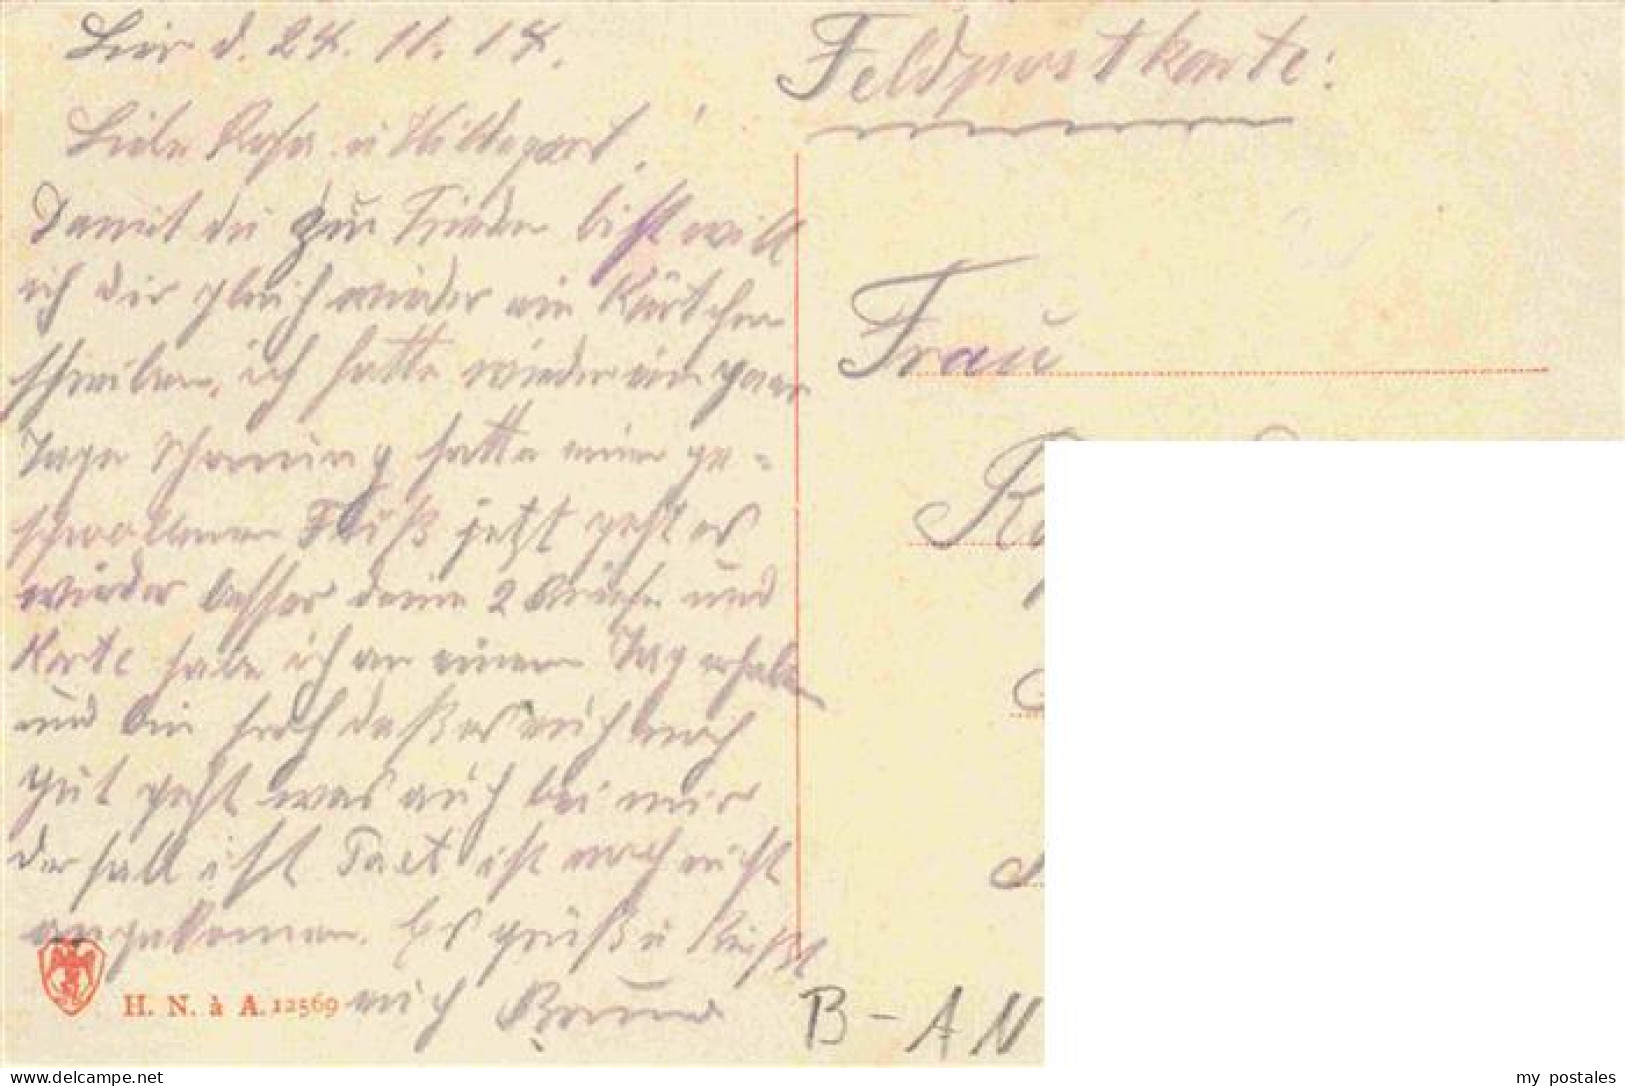 Lier d. 24. 11. 14.
Liebe Rosa u Hildegard!
Damit du zur Frieden bist will
ich dir gleich wieder ein Kärtchen
schreiben, ich hatte wieder ein paar
Tage Schonung hatte einen ge-
schwollenen Fuß jetzt geht es
wieder besser deine 2 Briefe und
Karte habe ich an einem Tag erhalten
und bin froh daß es euch noch
gut geht was auch bei mir
der fall ist Paet ist noch nicht
angekomen. Es grüßt u küßt
euch Bruno
H. N. à A. 12569
Feldpostkarte:
Frau
B-AN
my postales